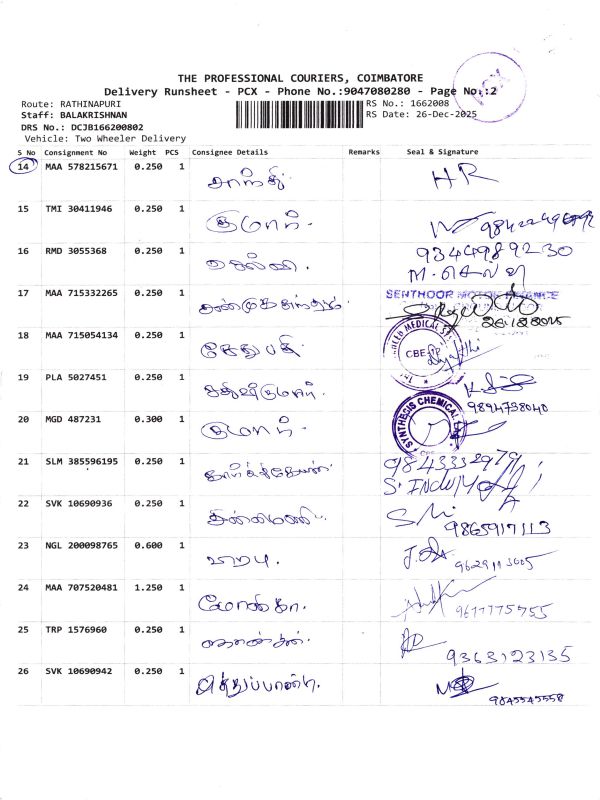 THE PROFESSIONAL COURIERS, COIMBATORE
Delivery Runsheet - PCX - Phone No.:9047080280 - Page No.:2
PCX
Route: RATHINAPURI
RS No.: 1662008
Staff: BALAKRISHNAN
RS Date: 26-Dec-2025
DRS No.: DCJB166200802
Vehicle: Two Wheeler Delivery
S No Consignment No Weight PCS Consignee Details Remarks Seal & Signature
14 MAA 578215671 0.250 1 HR
15 TMI 30411946 0.250 1 குமார்.
16 RMD 3055368 0.250 1 செல்வி. 9344989230
M. செல்வி
17 MAA 715332265 0.250 1 சண்முகசுந்தரம். SENTHOOR MOTOR
26.12.2025
18 MAA 715054134 0.250 1 சேதுபதி. MEDICAL CBE
19 PLA 5027451 0.250 1 சதீஷ்குமார். 9894738040
20 MGD 487231 0.300 1 குமார். SYNTHESIS CHEMICAL
21 SLM 385596195 0.250 1 கார்த்திகேயன். 9843332979
S. INDUMATHI
22 SVK 10690936 0.250 1 9865917113
23 NGL 200098765 0.600 1 பாபு. 9629113005
24 MAA 707520481 1.250 1 மோனிகா. 9677775755
25 TRP 1576960 0.250 1 9363123135
26 SVK 10690942 0.250 1 முத்துப்பாண்டி. 9845545558